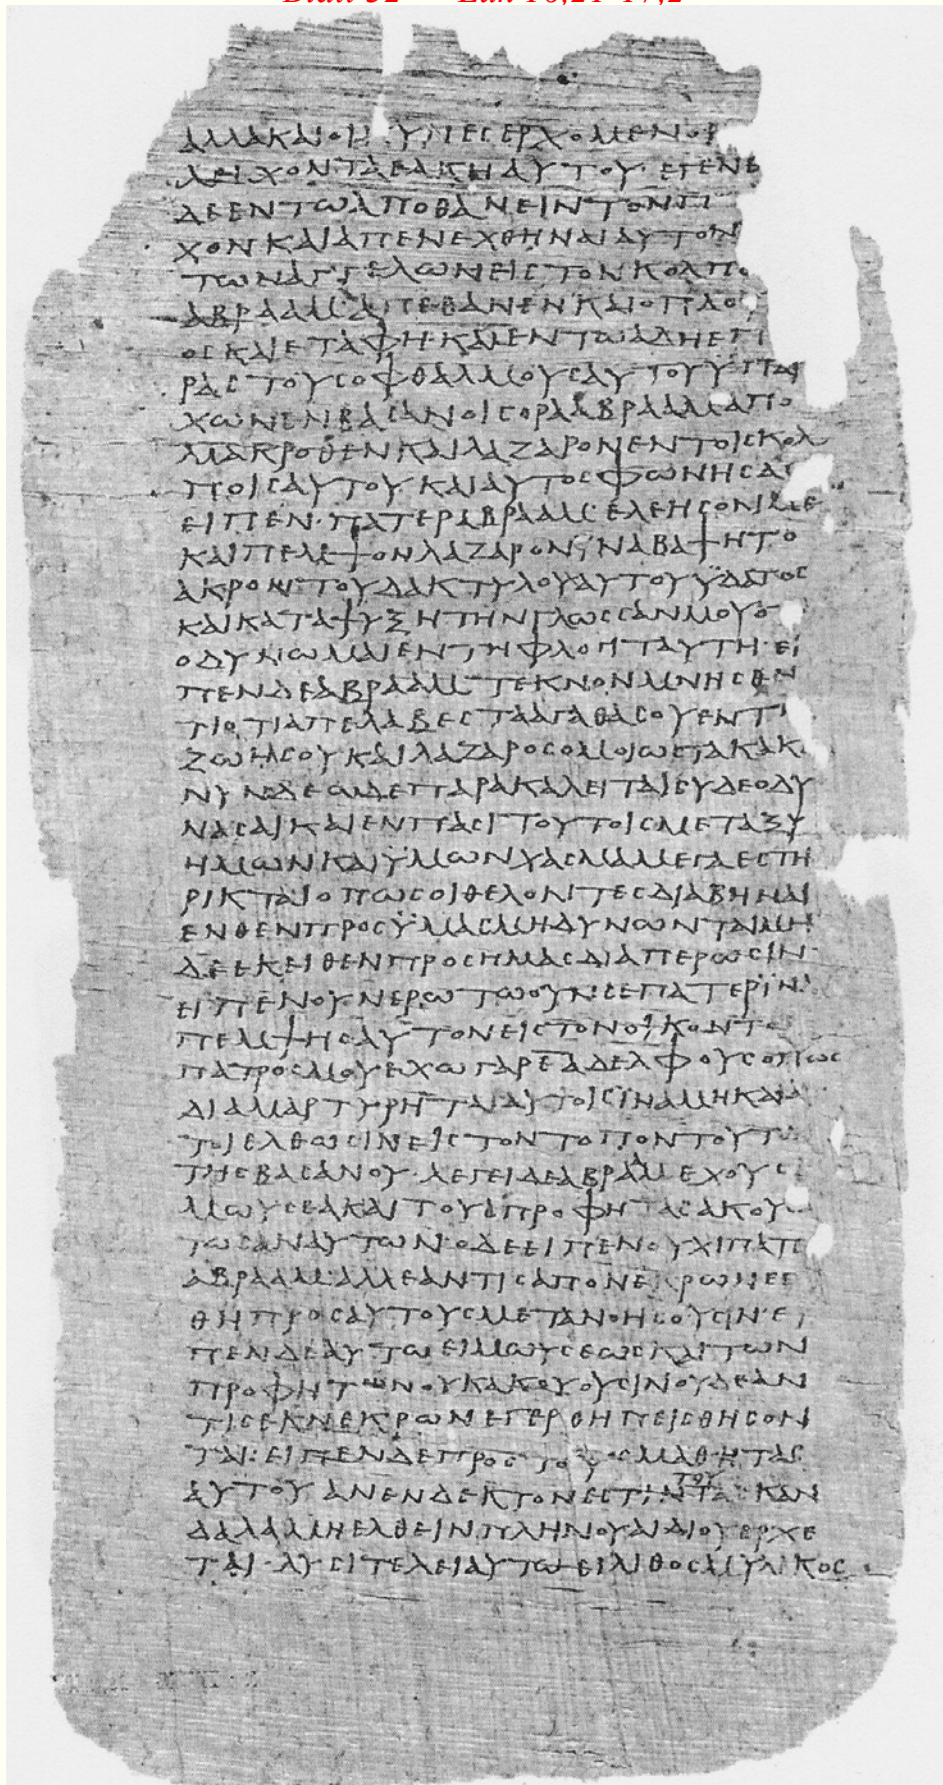 Blatt 32 Luk 16,21-17,2
ΑΛΛΑΚΑΙΟΙΚΥΝΕϹΕΡΧΟΜΕΝΟΙ
ΛΕΙΧΟΝΤΑΕΛΚΗΑΥΤΟΥ·ΕΓΕΝΕ
ΔΕΕΝΤΩΑΠΟΘΑΝΕΙΝΤΟΝΠΤ
ΧΟΝΚΑΙΑΠΕΝΕΧΘΗΝΑΙΑΥΤΟΝ
ΤΩΝΑΓΓΕΛΩΝΕΙϹΤΟΝΚΟΛΠΟ
ΑΒΡΑΑΜ·ΑΠΕΘΑΝΕΝΚΑΙΟΠΛΟΥ
ΟϹΚΑΙΕΤΑΦΗ·ΚΑΙΕΝΤΩΑΔΗΕΠ
ΡΑϹΤΟΥϹΟΦΘΑΛΜΟΥϹΑΥΤΟΥΫΠΑΡ
ΧΩΝΕΝΒΑϹΑΝΟΙϹΟΡΑΑΒΡΑΑΜΑΠΟ
ΜΑΚΡΟΘΕΝΚΑΙΛΑΖΑΡΟΝΕΝΤΟΙϹΚΟΛ
ΠΟΙϹΑΥΤΟΥΚΑΙΑΥΤΟϹΦΩΝΗϹΑϹ
ΕΙΠΕΝ·ΠΑΤΕΡΑΒΡΑΑΜ·ΕΛΕΗϹΟΝΜΕ
ΚΑΙΠΕΜΨΟΝΛΑΖΑΡΟΝΪΝΑΒΑΨΗΤΟ
ΑΚΡΟΝΤΟΥΔΑΚΤΥΛΟΥΑΥΤΟΥΫΔΑΤΟϹ
ΚΑΙΚΑΤΑΨΥΞΗΤΗΝΓΛΩϹϹΑΝΜΟΥΟ
ΟΔΥΝΩΜΑΙΕΝΤΗΦΛΟΓΙΤΑΥΤΗ·ΕΙ
ΠΕΝΔΕΑΒΡΑΑΜ·ΤΕΚΝΟΝΜΝΗϹΘΗ
ΤΙΟΤΙΑΠΕΛΑΒΕϹΤΑΑΓΑΘΑϹΟΥΕΝΤΗ
ΖΩΗϹΟΥΚΑΙΛΑΖΑΡΟϹΟΜΟΙΩϹΤΑΚΑΚΑ
ΝΥΝΔΕΩΔΕΠΑΡΑΚΑΛΕΙΤΑΙϹΥΔΕΟΔΥ
ΝΑϹΑΙΚΑΙΕΝΠΑϹΙΤΟΥΤΟΙϹΜΕΤΑΞΥ
ΗΜΩΝΚΑΙΫΜΩΝΧΑϹΜΑΜΕΓΑΕϹΤΗ
ΡΙΚΤΑΙΟΠΩϹΟΙΘΕΛΟΝΤΕϹΔΙΑΒΗΝΑΙ
ΕΝΘΕΝΠΡΟϹΫΜΑϹΜΗΔΥΝΩΝΤΑΙΜΗ
ΔΕΕΚΕΙΘΕΝΠΡΟϹΗΜΑϹΔΙΑΠΕΡΩϹΙΝ·
ΕΙΠΕΝΟΥΝΕΡΩΤΩΟΥΝϹΕΠΑΤΕΡΪΝΑ
ΠΕΜΨΗϹΑΥΤΟΝΕΙϹΤΟΝΟΙΚΟΝΤΟ
ΠΑΤΡΟϹΜΟΥΕΧΩΓΑΡΕ̅ΑΔΕΛΦΟΥϹΟΠΩϹ
ΔΙΑΜΑΡΤΥΡΗΤΑΙΑΥΤΟΙϹΪΝΑΜΗΚΑΙΑ
ΤΟΙΕΛΘΩϹΙΝΕΙϹΤΟΝΤΟΠΟΝΤΟΥΤΟ
ΤΗϹΒΑϹΑΝΟΥ·ΛΕΓΕΙΔΕΑΒΡΑΑΜΕΧΟΥϹΙ
ΜΩΥϹΕΑΚΑΙΤΟΥϹΠΡΟΦΗΤΑϹΑΚΟΥ
ΤΩϹΑΝΑΥΤΩΝ·ΟΔΕΕΙΠΕΝΟΥΧΙΠΑΤΕ
ΑΒΡΑΑΜ·ΑΛΛΕΑΝΤΙϹΑΠΟΝΕΚΡΩΝΕΓ
ΘΗΠΡΟϹΑΥΤΟΥϹΜΕΤΑΝΟΗϹΟΥϹΙΝ·ΕΙ
ΠΕΝΔΕΑΥΤΩΕΙΜΩΥϹΕΩϹΚΑΙΤΩΝ
ΠΡΟΦΗΤΩΝΟΥΚΑΚΟΥΟΥϹΙΝΟΥΔΕΑΝ
ΤΙϹΕΚΝΕΚΡΩΝΕΓΕΡΘΗΠΕΙϹΘΗϹΟΝ
ΤΑΙ:ΕΙΠΕΝΔΕΠΡΟϹΤΟΥϹΜΑΘΗΤΑϹ
ΑΥΤΟΥΑΝΕΝΔΕΚΤΟΝΕϹΤΙΝΤΟΥΤΑϹΚΑΝ
ΔΑΛΑΜΗΕΛΘΕΙΝΠΛΗΝΟΥΑΙΔΙΟΥΕΡΧΕ
ΤΑΙ·ΛΥϹΙΤΕΛΕΙΑΥΤΩΕΙΛΙΘΟϹΜΥΛΙΚΟϹ